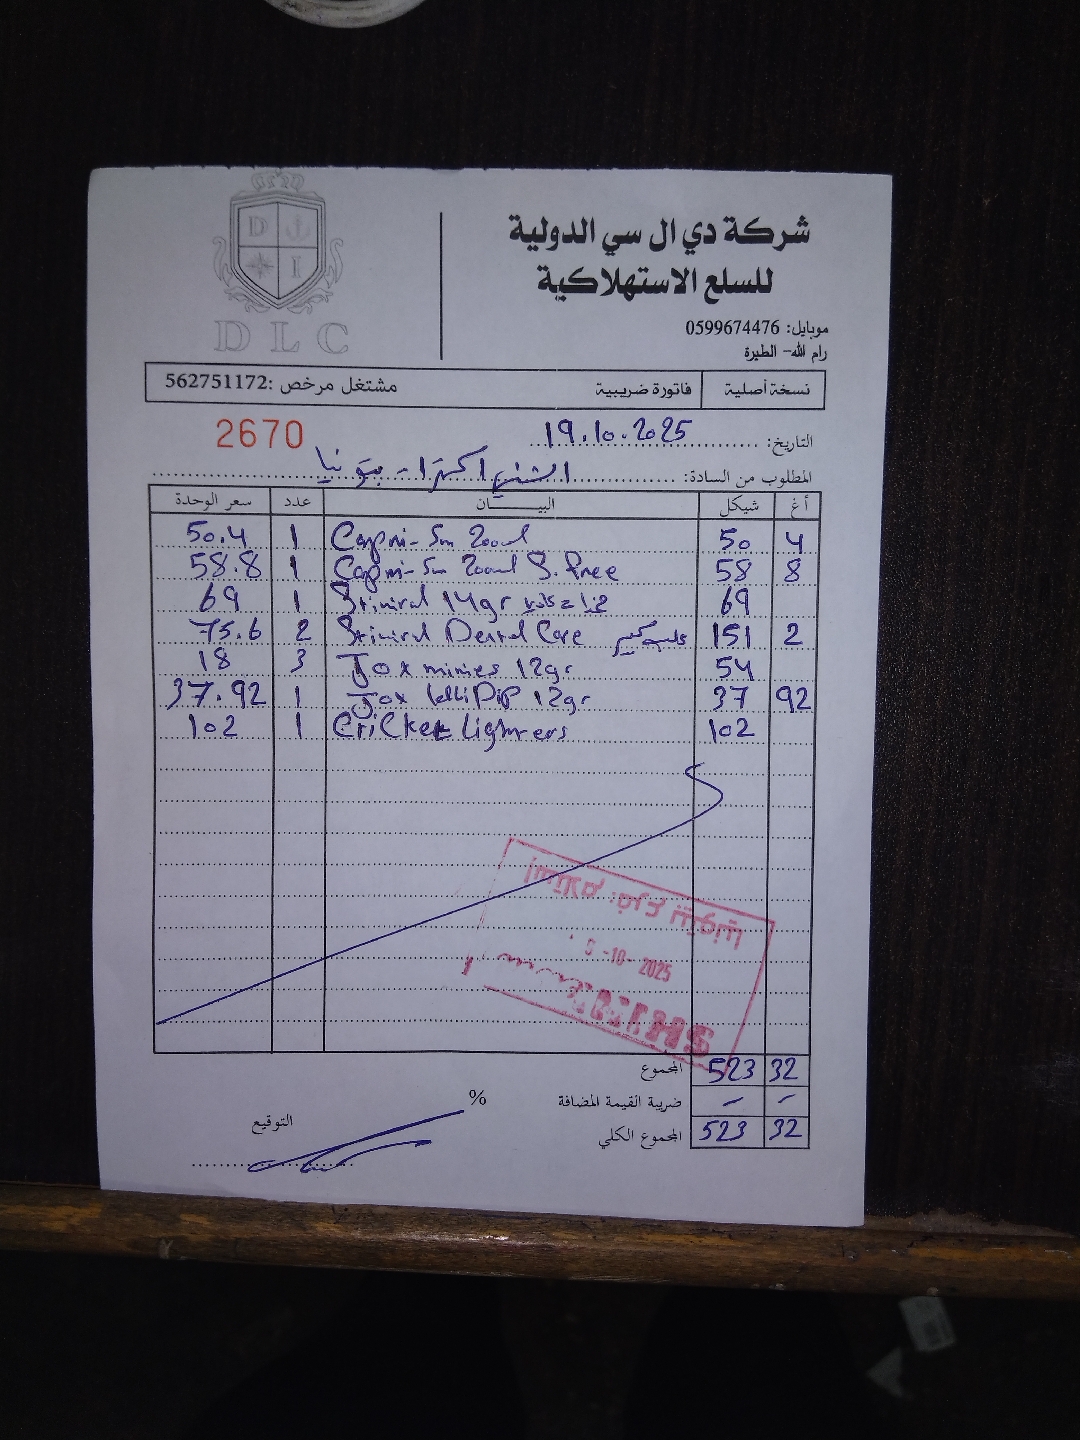 DLC
شركة دي ال سي الدولية
للسلع الاستهلاكية
موبايل: 0599674476
رام الله- الطيرة
نسخة أصلية فاتورة ضريبية مشتغل مرخص :562751172
2670
التاريخ: 19.10.2025
المطلوب من السادة: الشني اكسترا - بيتونيا
أغ شيكل البيــــــان عدد سعر الوحدة
50.4 1 Capri-Sun 200ml 50 4
58.8 1 Capri-Sun 200ml S. free 58 8
69 1 Stimirol 14gr 69
75.6 2 Stimirol Dental Care 151 2
18 3 Jox minies 12gr 54
37.92 1 Jox lolliDip 12gr 37 92
102 1 Cricket Lighters 102
إستلام فرع بيتونيا
-10- 2025
المجموع 523 32
ضريبة القيمة المضافة % - -
المجموع الكلي 523 32
التوقيع